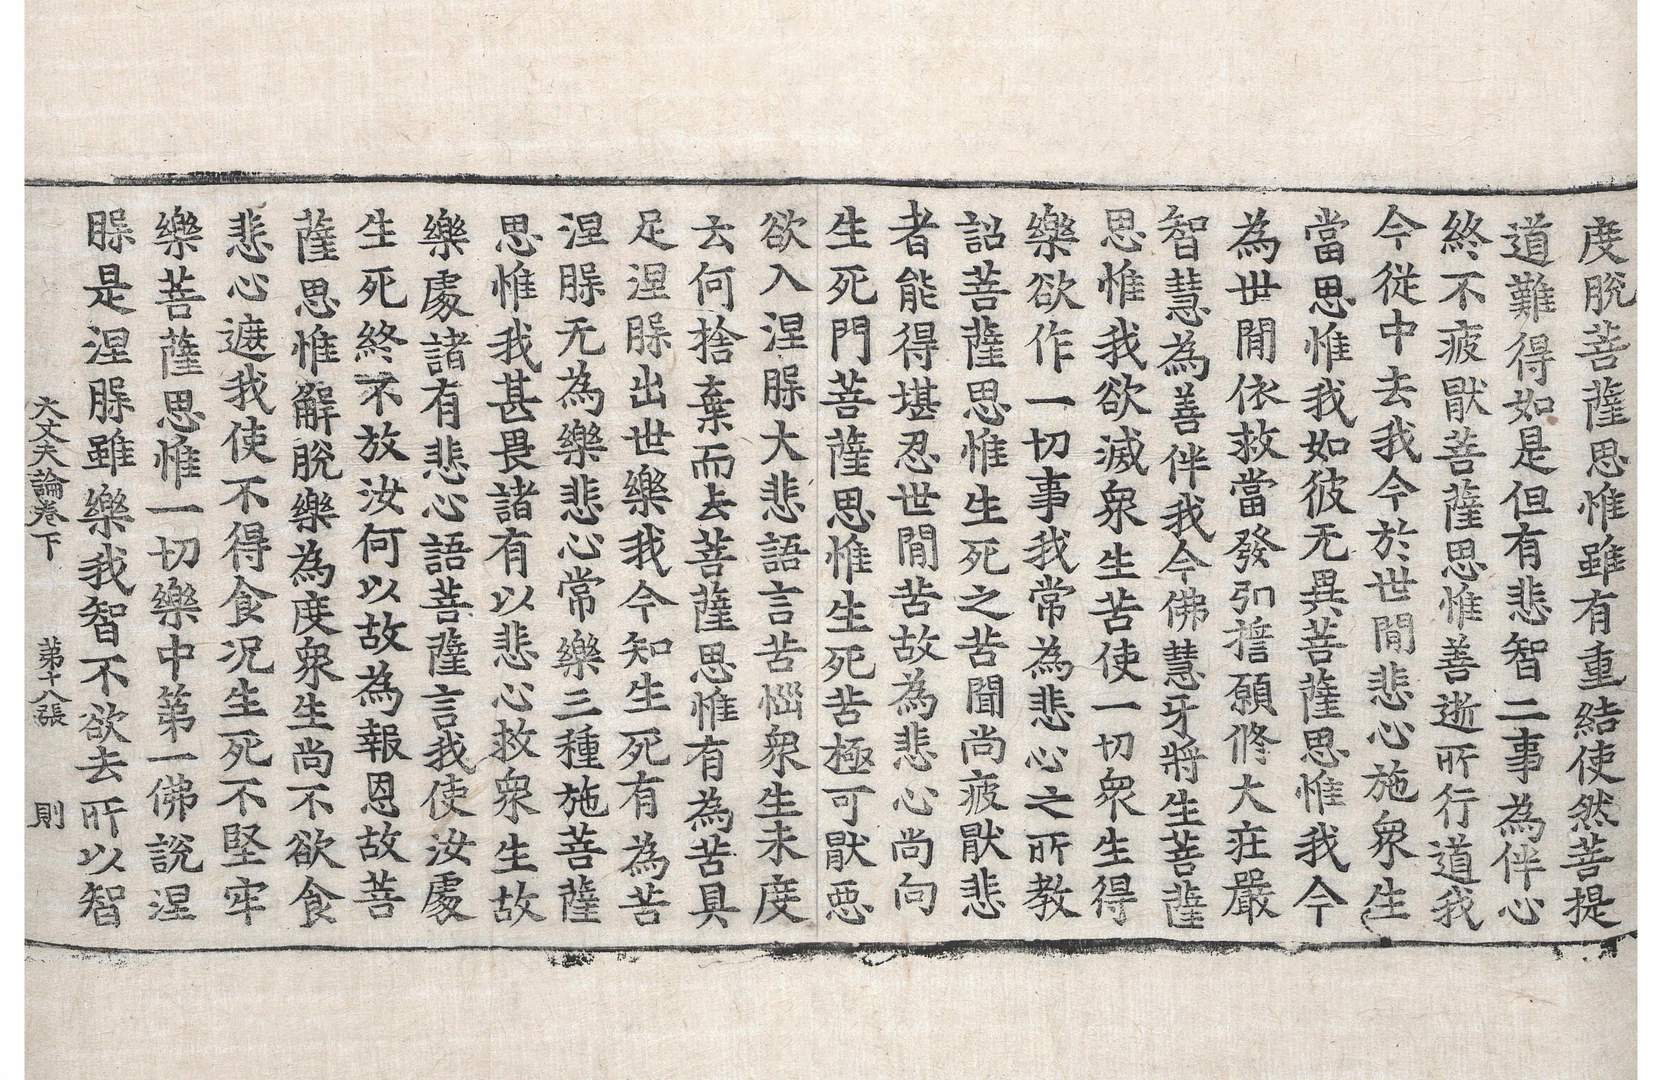 度脫菩薩思惟雖有重結使然菩提
道難得如是但有悲智二事為伴心
終不疲猒菩薩思惟善逝所行道我
今從中去我今於世閒悲心施衆生
當思惟我如彼无異菩薩思惟我今
為世閒依救當發引擔願修大莊嚴
智慧為善伴我今佛慧牙將生菩薩
思惟我欲滅衆生苦使一切衆生得
樂欲作一切事我常為悲心之所教
詔菩薩思惟生死之苦聞尚疲猒悲
者能得堪忍世閒苦故為悲心尚向
生死門菩薩思惟生死苦極可猒惡
欲入涅槃大悲語言苦惱衆生未度
云何捨棄而去菩薩思惟有為苦具
足涅槃出世樂我今知生死有為苦
涅槃无為樂悲心常樂三種施菩薩
思惟我甚畏諸有以悲心救衆生故
樂處諸有悲心語菩薩言我使汝處
生死終不放汝何以故為報恩故菩
薩思惟解脫樂為度衆生尚不欲食
悲心遮我使不得食况生死不堅牢
樂菩薩思惟一切樂中第一佛說涅
槃是涅槃雖樂我智不欲去所以智
大丈夫論卷下 第十八張 則